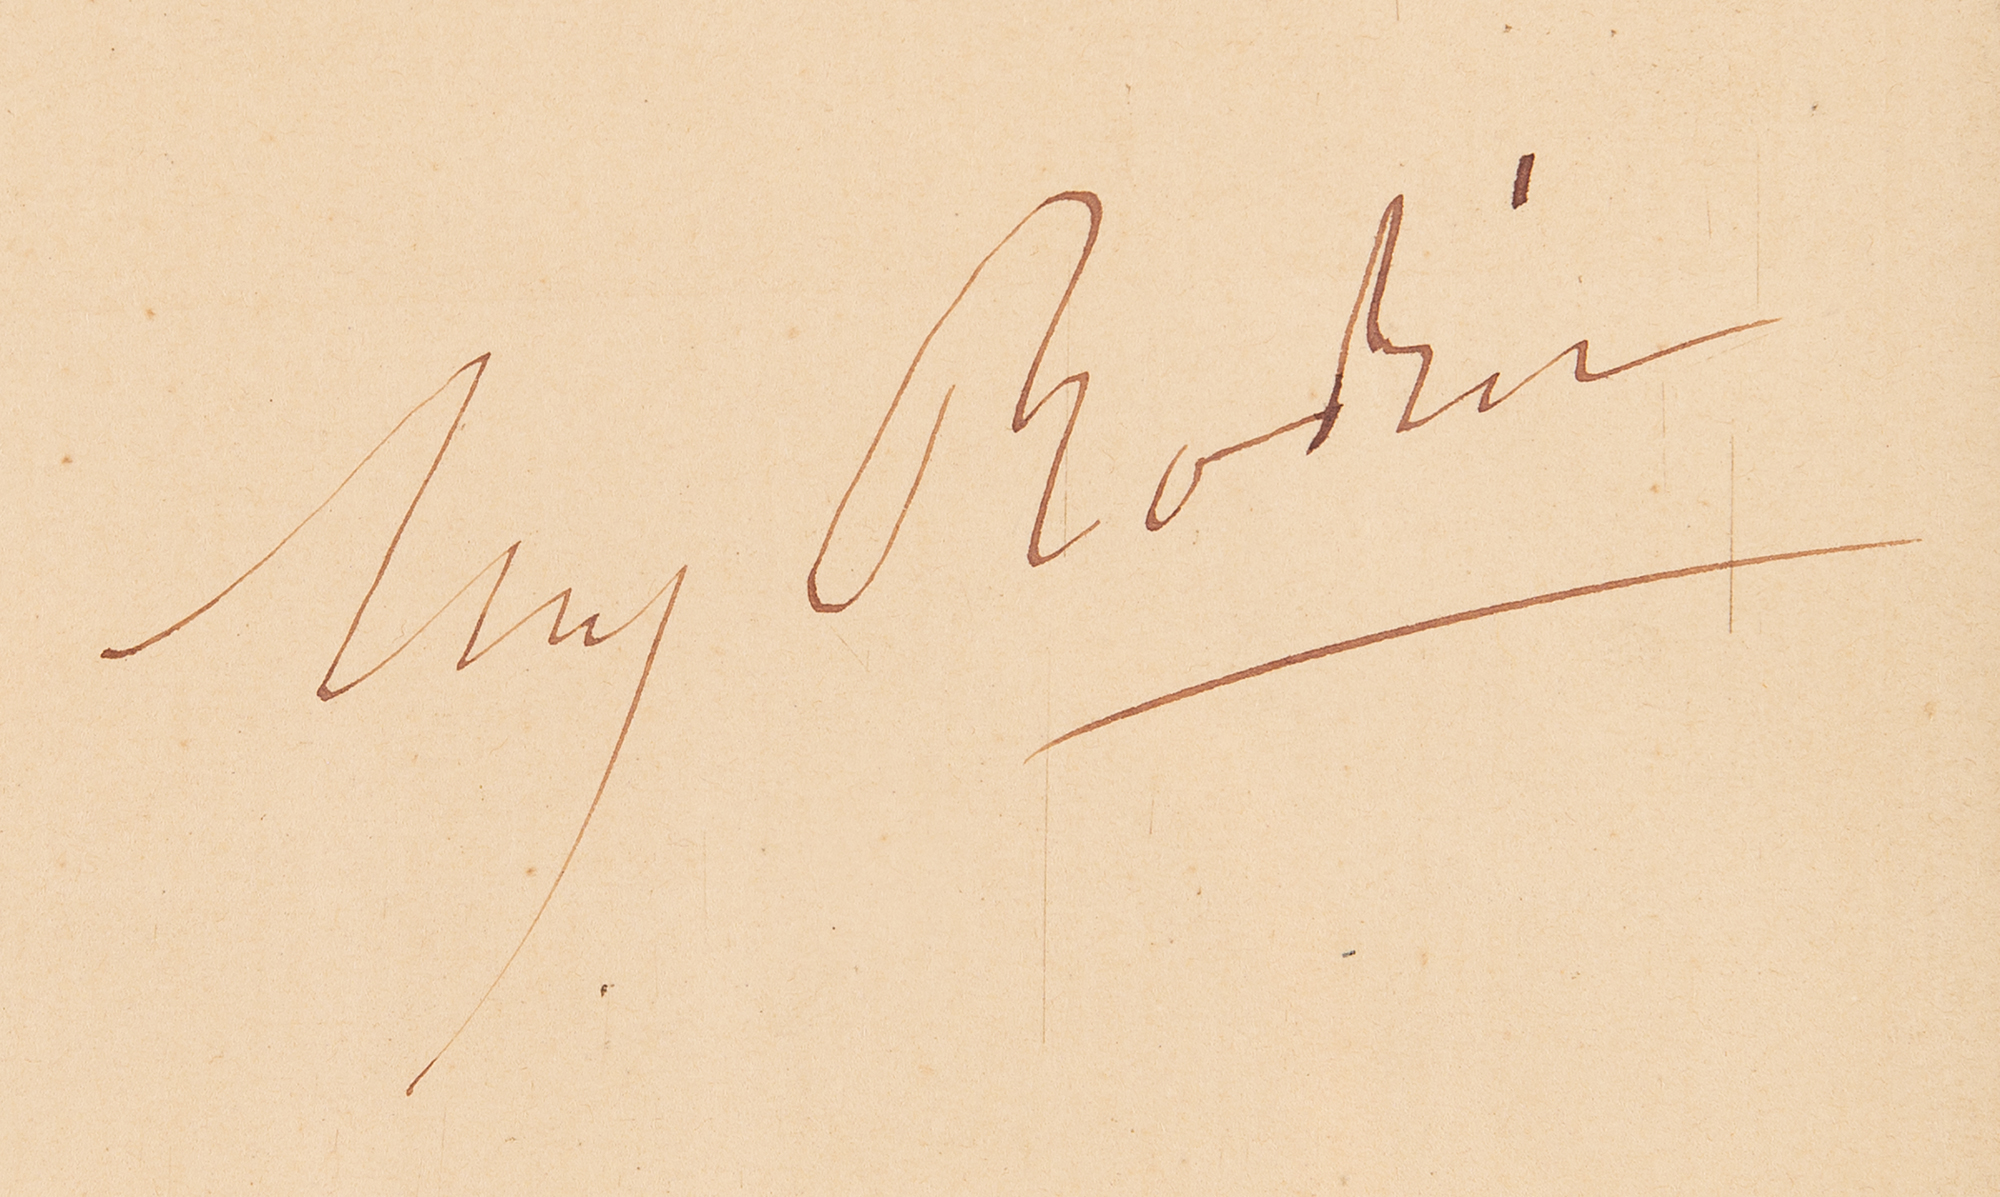 Aug Rodin